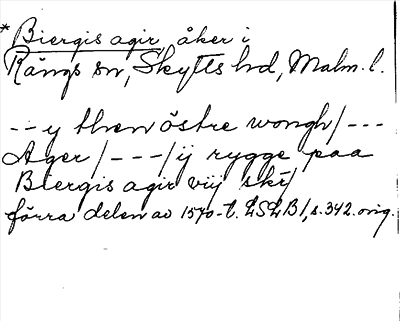 * Biergis agir, åker i
Rängs sn, Skytts hd, Malm. l.
--- y then östre wongh/ ---
Ager / --- / ij rygge paa
Biergis agir viij skr/
förra delen av 1570-t. LSLB 1, s. 342. orig.